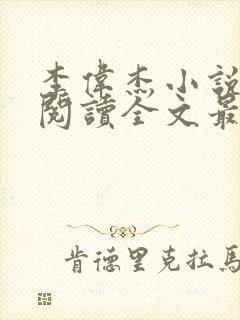 李偉杰小説
閱讀全文最
肯德里克拉馬